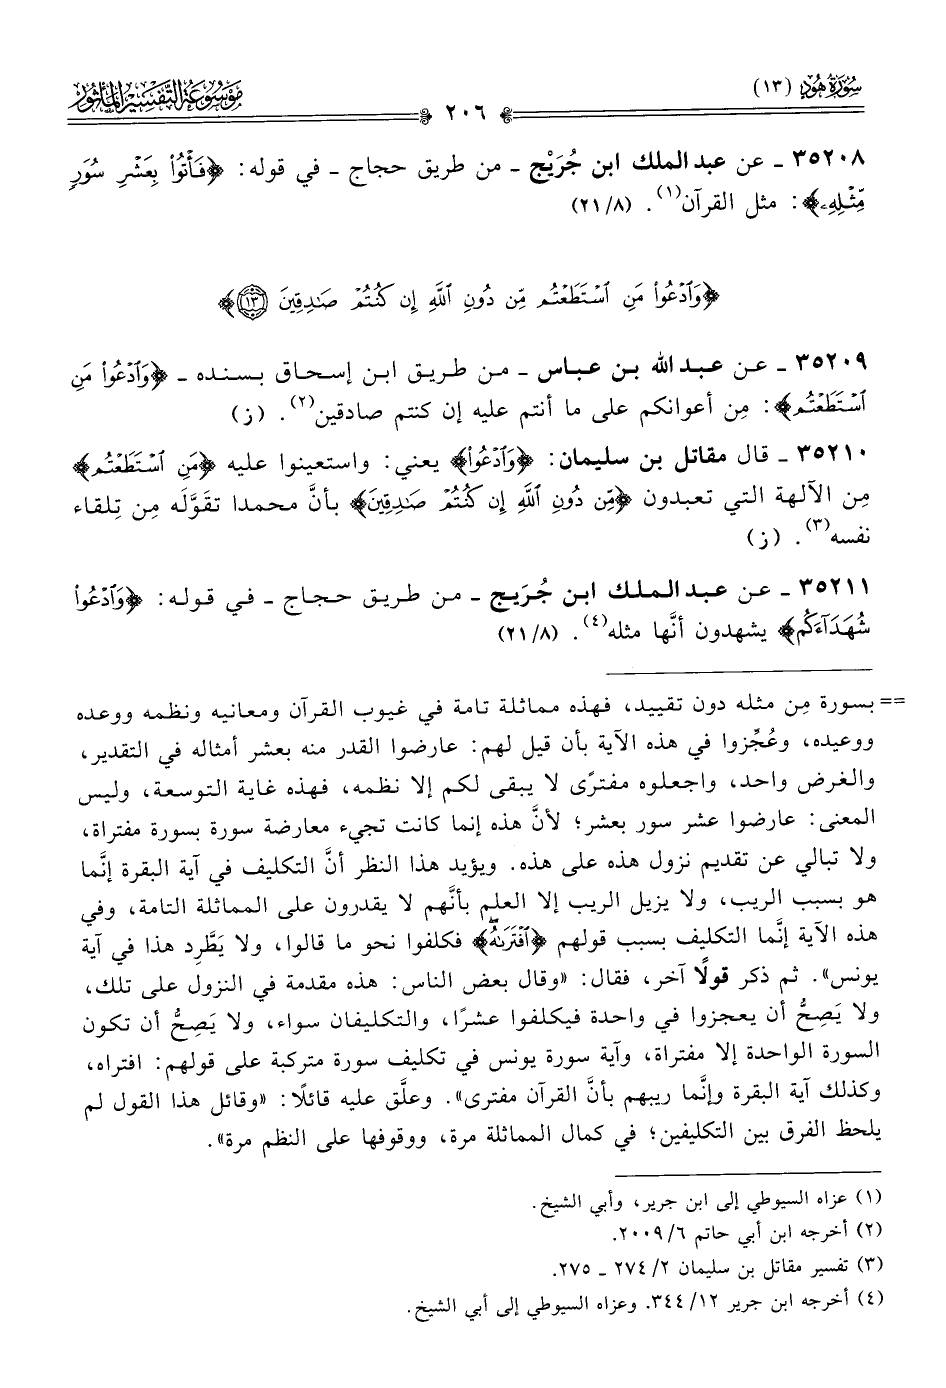 سُورَةُ هُودٍ (١٣)
٢٠٦
مَوْسُوعَة التَّفْسِير المَأْثُور
٣٥٢٠٨ ـ عن عبد الملك ابن جُرَيْج ـ من طريق حجاج ـ في قوله: ﴿فَأْتُوا۟ بِعَشْرِ سُوَرٍ
مِّثْلِهِۦ﴾: مثل القرآن(١). (٢١/٨)
﴿وَٱدْعُوا۟ مَنِ ٱسْتَطَعْتُم مِّن دُونِ ٱللَّهِ إِن كُنتُمْ صَـٰدِقِينَ ١٣﴾
٣٥٢٠٩ ـ عن عبد الله بن عباس ـ من طريق ابن إسحاق بسنده ـ ﴿وَٱدْعُوا۟ مَنِ
ٱسْتَطَعْتُم﴾: مِن أعوانكم على ما أنتم عليه إن كنتم صادقين(٢). (ز)
٣٥٢١٠ ـ قال مقاتل بن سليمان: ﴿وَٱدْعُوا۟﴾ يعني: واستعينوا عليه ﴿مَنِ ٱسْتَطَعْتُم﴾
مِن الآلهة التي تعبدون ﴿مِّن دُونِ ٱللَّهِ إِن كُنتُمْ صَـٰدِقِينَ﴾ بأنَّ محمدا تقوَّله مِن تِلقاء
نفسه(٣). (ز)
٣٥٢١١ ـ عن عبد الملك ابن جُرَيج ـ من طريق حجاج ـ في قوله: ﴿وَٱدْعُوا۟
شُهَدَآءَكُم﴾ يشهدون أنَّها مثله(٤). (٢١/٨)
== بسورة مِن مثله دون تقييد، فهذه مماثلة تامة في غيوب القرآن ومعانيه ونظمه ووعده
ووعيده، وعُجِّزوا في هذه الآية بأن قيل لهم: عارضوا القدر منه بعشر أمثاله في التقدير،
والغرض واحد، واجعلوه مفترًى لا يبقى لكم إلا نظمه، فهذه غاية التوسعة، وليس
المعنى: عارضوا عشر سور بعشر؛ لأنَّ هذه إنما كانت تجيء معارضة سورة بسورة مفتراة،
ولا تبالي عن تقديم نزول هذه على هذه. ويؤيد هذا النظر أنَّ التكليف في آية البقرة إنَّما
هو بسبب الريب، ولا يزيل الريب إلا العلم بأنَّهم لا يقدرون على المماثلة التامة، وفي
هذه الآية إنَّما التكليف بسبب قولهم ﴿ٱفْتَرَىٰهُ﴾ فكلفوا نحو ما قالوا، ولا يَطَّرِد هذا في آية
يونس». ثم ذكر قولًا آخر، فقال: «وقال بعض الناس: هذه مقدمة في النزول على تلك،
ولا يَصِحُّ أن يعجزوا في واحدة فيكلفوا عشرًا، والتكليفان سواء، ولا يَصِحُّ أن تكون
السورة الواحدة إلا مفتراة، وآية سورة يونس في تكليف سورة متركبة على قولهم: افتراه،
وكذلك آية البقرة وإنَّما ريبهم بأنَّ القرآن مفترى». وعلَّق عليه قائلًا: «وقائل هذا القول لم
يلحظ الفرق بين التكليفين؛ في كمال المماثلة مرة، ووقوفها على النظم مرة».
(١) عزاه السيوطي إلى ابن جرير، وأبي الشيخ.
(٢) أخرجه ابن أبي حاتم ٢٠٠٩/٦.
(٣) تفسير مقاتل بن سليمان ٢٧٤/٢ ـ ٢٧٥.
(٤) أخرجه ابن جرير ٣٤٤/١٢. وعزاه السيوطي إلى أبي الشيخ.